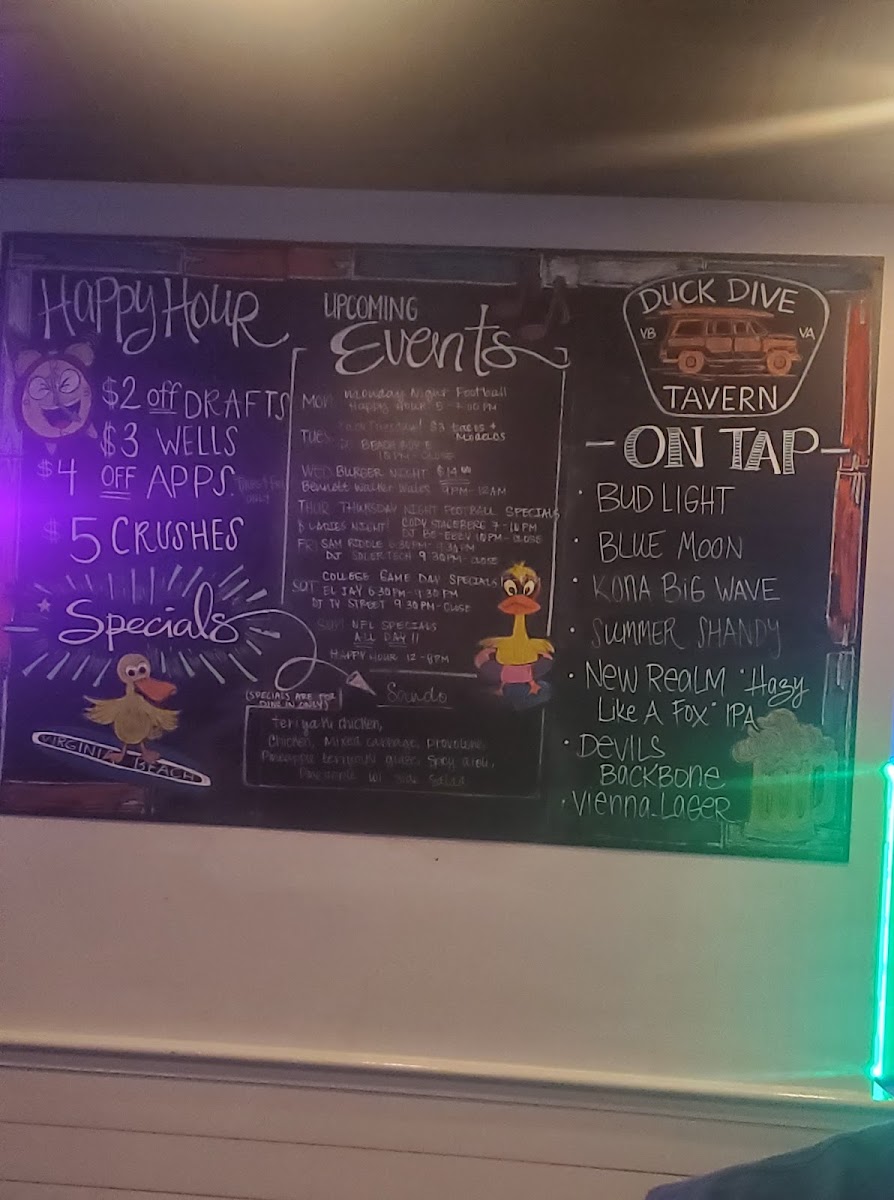 Happy Hour
$2 off DRAFTS
$3 WELLS
$4 OFF APPS.
$5 CRUSHES
Specials
VIRGINIA BEACH
UPCOMING
Events
MON Monday Night Football
Happy Hour 5 - 7:00 PM
TUES Taco Tuesday! $3 tacos +
Modelos
10 PM - CLOSE
WED BURGER NIGHT $14.00
Bennett Walter Wales 9PM - 12AM
THUR THURSDAY NIGHT FOOTBALL SPECIALS
& LADIES NIGHT! CODY 7 - 10 PM
DJ 10PM - CLOSE
FRI SAM RIDDLE 6:30PM - 9:30PM
DJ 9:30PM - CLOSE
SAT COLLEGE GAME DAY SPECIALS
EL JAY 6:30 PM - 9:30 PM
DJ TV STREET 9:30 PM - CLOSE
SUN NFL SPECIALS
ALL DAY!!
HAPPY HOUR 12 - 8PM
(SPECIALS ARE FOR
DINE IN ONLY)
Sando
teriyaki chicken,
Chicken, Mixed cabbage, provolone,
Pineapple teriyaki glaze, Spicy aioli,
w/ side salad
DUCK DIVE
VB VA
TAVERN
- ON TAP -
· BUD LIGHT
· BLUE MOON
· KONA BIG WAVE
· SUMMER SHANDY
· NEW REALM "Hazy
LIKE A FOX" IPA
· DEVILS
BACKBONE
· VIENNA LAGER